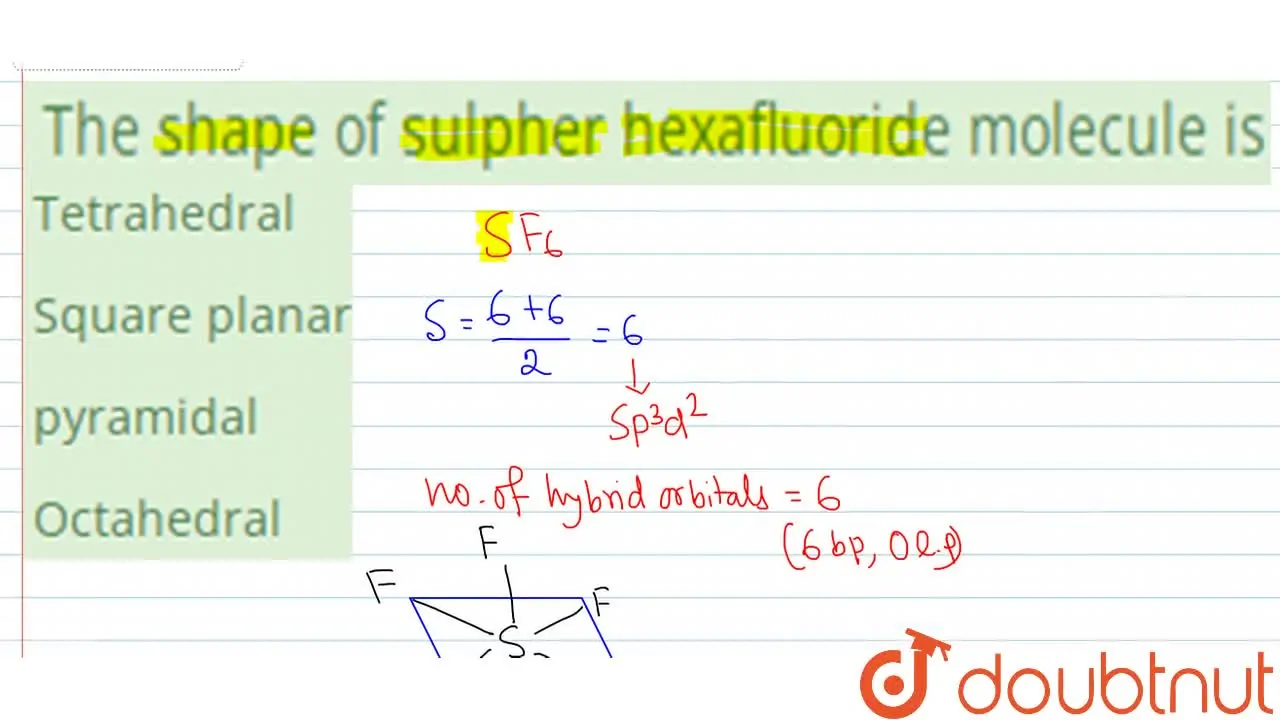 The shape of sulpher hexafluoride molecule is
Tetrahedral
Square planar
pyramidal
Octahedral
SF₆
S = 6+6/2 = 6
↓
Sp³d²
no. of hybrid orbitals = 6
(6 bp, 0 l.p)
F
F
F
S
doubtnut